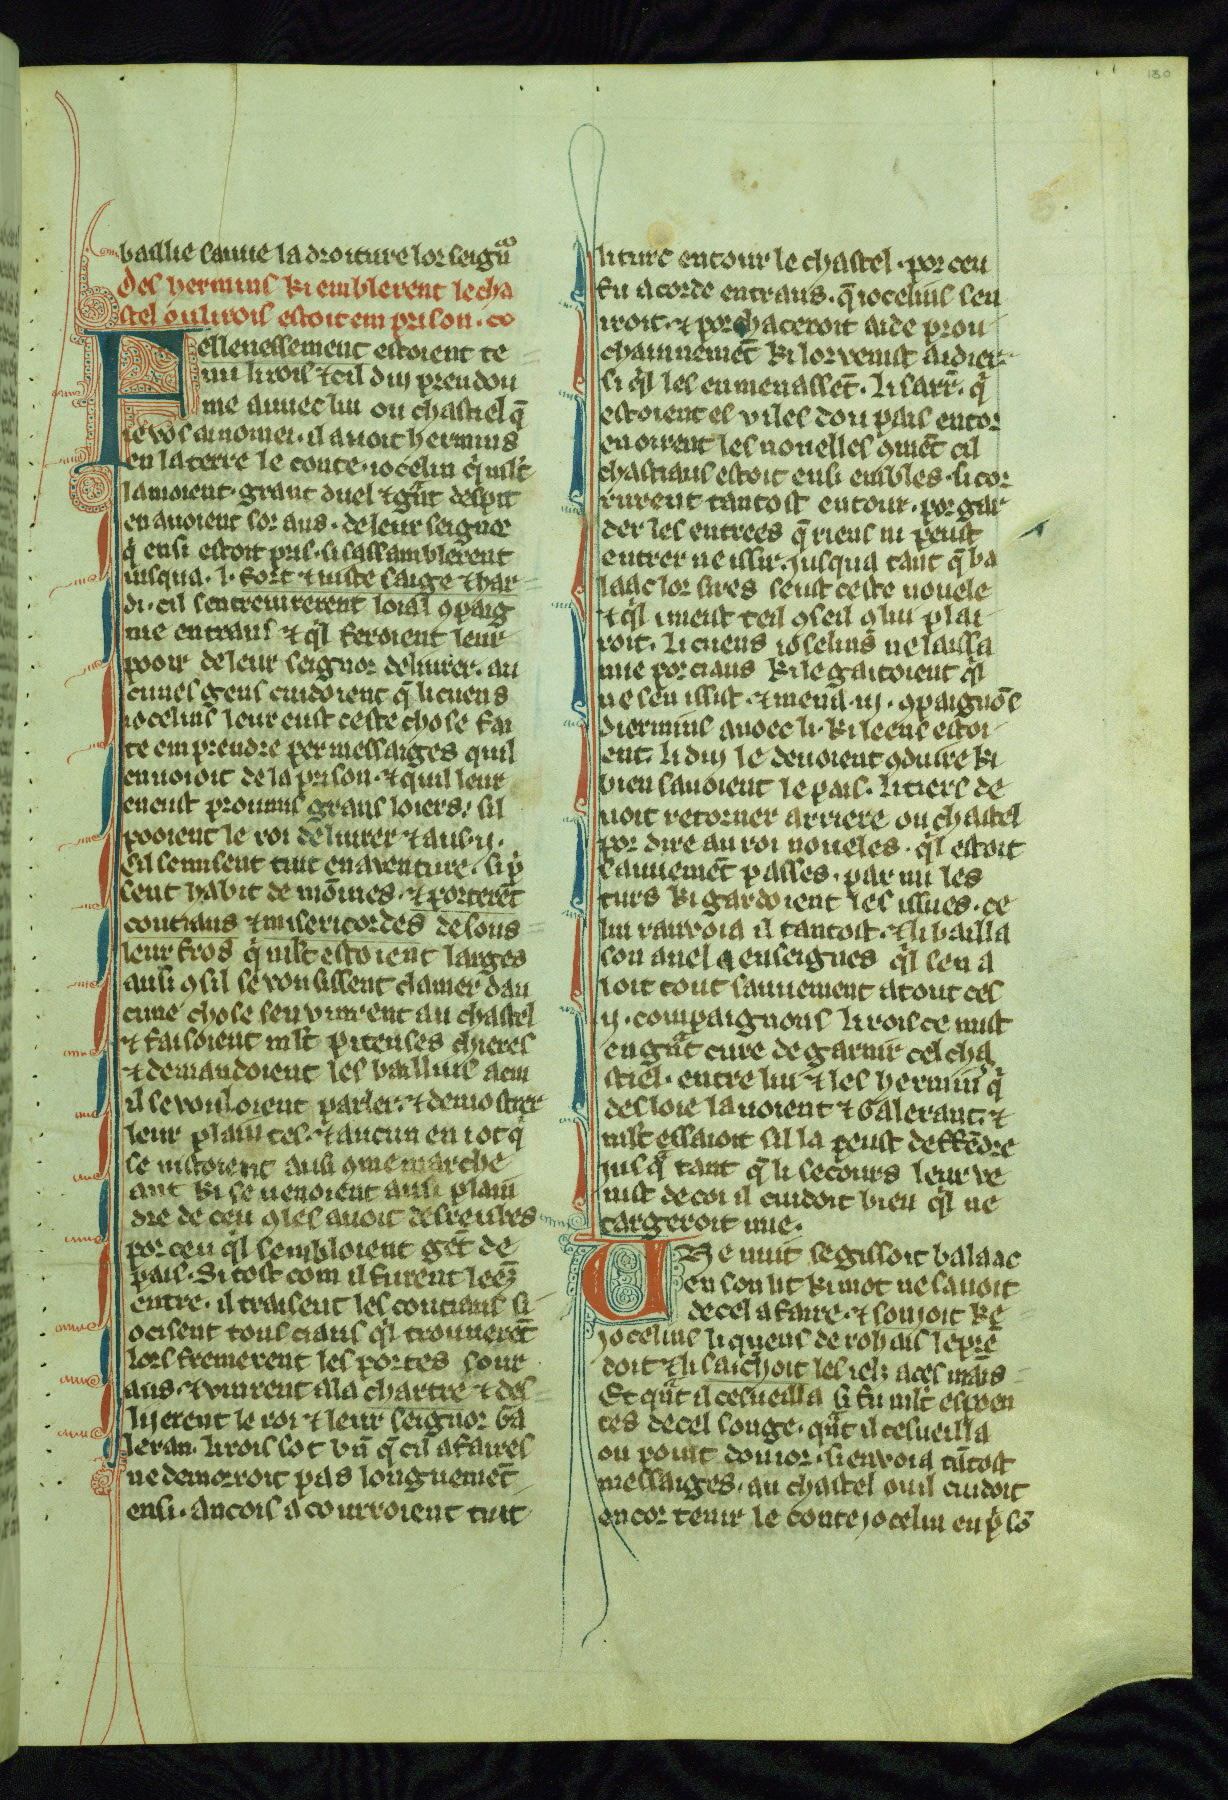 130
baillie sauue la droiture lor seigũ
des hermins ki emblerent le cha
stel ou li rois estoit em prison · co
Fellenessement estoient te
nu li rois ⁊ cil dui preudou
me auuec lui ou chastiel q̃
ie vos ai nomei · il auoit hermins
en la terre le conte · iocelin q̓ mlt̃
lamoient · grant duel ⁊ gñt despit
en auoient sor aus · de leur seignor
q̓ ensi estoit pris · si sassamblerent
iusqua · l · fort ⁊ uiste saige ⁊ har
di · cil sentreiurerent loial ꝯpaig
nie entraus ⁊ q̓l feroient leur
pooir de leur seignor deliurer · au
cunes gens cuidoient q̃ li cuens
iocelins leur eust ceste chose fai
te emprendre per messaiges quil
enuoioit de la prison · ⁊ quil leur
eneust proumis grans loiers / sil
pooient le roi deliurer ⁊ aus · ij ·
Cil se misent tuit en aventure · si p̓
sent habit de mõines · ⁊ porterẽt
coutiaus ⁊ misericordes desous
leur fros q̓ mlt̃ estoient larges
ausi ꝯ sil se vousissent clamer dau
cune chose sen vinrent au chastel
⁊ faisoient mlt̃ piteuses chieres
⁊ demandoient les baillius a cui
il se vouloient parler · ⁊ demostrer
leur plaintes · ⁊ aucun en i ot q̓
se uistoient ausi ꝯme marche
ant ki se uenoient ausi plain
dre de ceu ꝯ les auoit desreubes
por ceu q̓l sembloient gẽt de
pais · Si tost com il furent leẽz
entre · il traisent les coutiaus si
ocisent tous ciaus q̓l trouuerẽt
lors fremerent les portes sour
aus · ⁊ vinrent a la chartre ⁊ des
lijerent le roi ⁊ leur seignor Ga
leran · li rois sot bñ q̃ cil afaires
ne demorroit pas longuemẽt
ensi · ancois acourroient tuit
li turc entour le chastel · por ceu
fu acorde entraus · q̃ iocelins sen
iroit · ⁊ porchaceroit aide prou
chainnemẽt ki lor venist aidier
si q̓l les en menassẽt · li sarr̃ · q̓
estoient es viles dou pais entor
en oirent les nouelles ꝯmẽt cil
chastiaus estoit ensi embles · si cor
rurent tantost entour · por gar
der les entrees q̃ riens ni peust
entrer ne issir · jusqua tant q̃ ba
laac lor sires seust ceste nouele
⁊ q̓l i meist teil ꝯseil ꝯ lui plai
roit · li cuens ioselins ne laissa
mie por ciaus ki le gaitoient q̓l
ne sen issist · ⁊ mena · iij · ꝯpaignõs
diermins auoec li · ki leens estoi
ent · li dui le deuoient ꝯduire ki
bien sauoient le pais · li tiers de
uoit retorner arriere ou chastel
por dire au roi noueles · q̓l estoit
sauuemẽt passes · par mi les
turs ki gardoient les issues · ce
lui ranuoia il tantost · ⁊ li bailla
son anel a enseignes q̓l sen a
loit tout sauuement a tout ces
ij · compaignons li rois ce mist
en gñt cure de garnir cel cha
stiel · entre lui ⁊ les hermins q̓
desloie lauoient ⁊ Galerant · ⁊
mlt̃ essaioit sil la peust deffẽdre
jusq̓ tant q̃ li secours leur ve
nist de coi il cuidoit bien q̓l ne
targeroit mie ·
Une nuit se gissoit balaac
en son lit ki mot ne sauoit
de cel afaire · ⁊ sonjoit ke
jocelins li quens de rohais le prẽ
doit ⁊ li saichoit les ielz a ces mais
Et qũt il cesueilla si fu mlt̃ espoen
tes de cel songe · qũt il cesueilla
ou point dou ior · si envoia tñtost
messaiges · au chastel ou il cuidoit
encor tenir le conte jocelin en p̓sõ